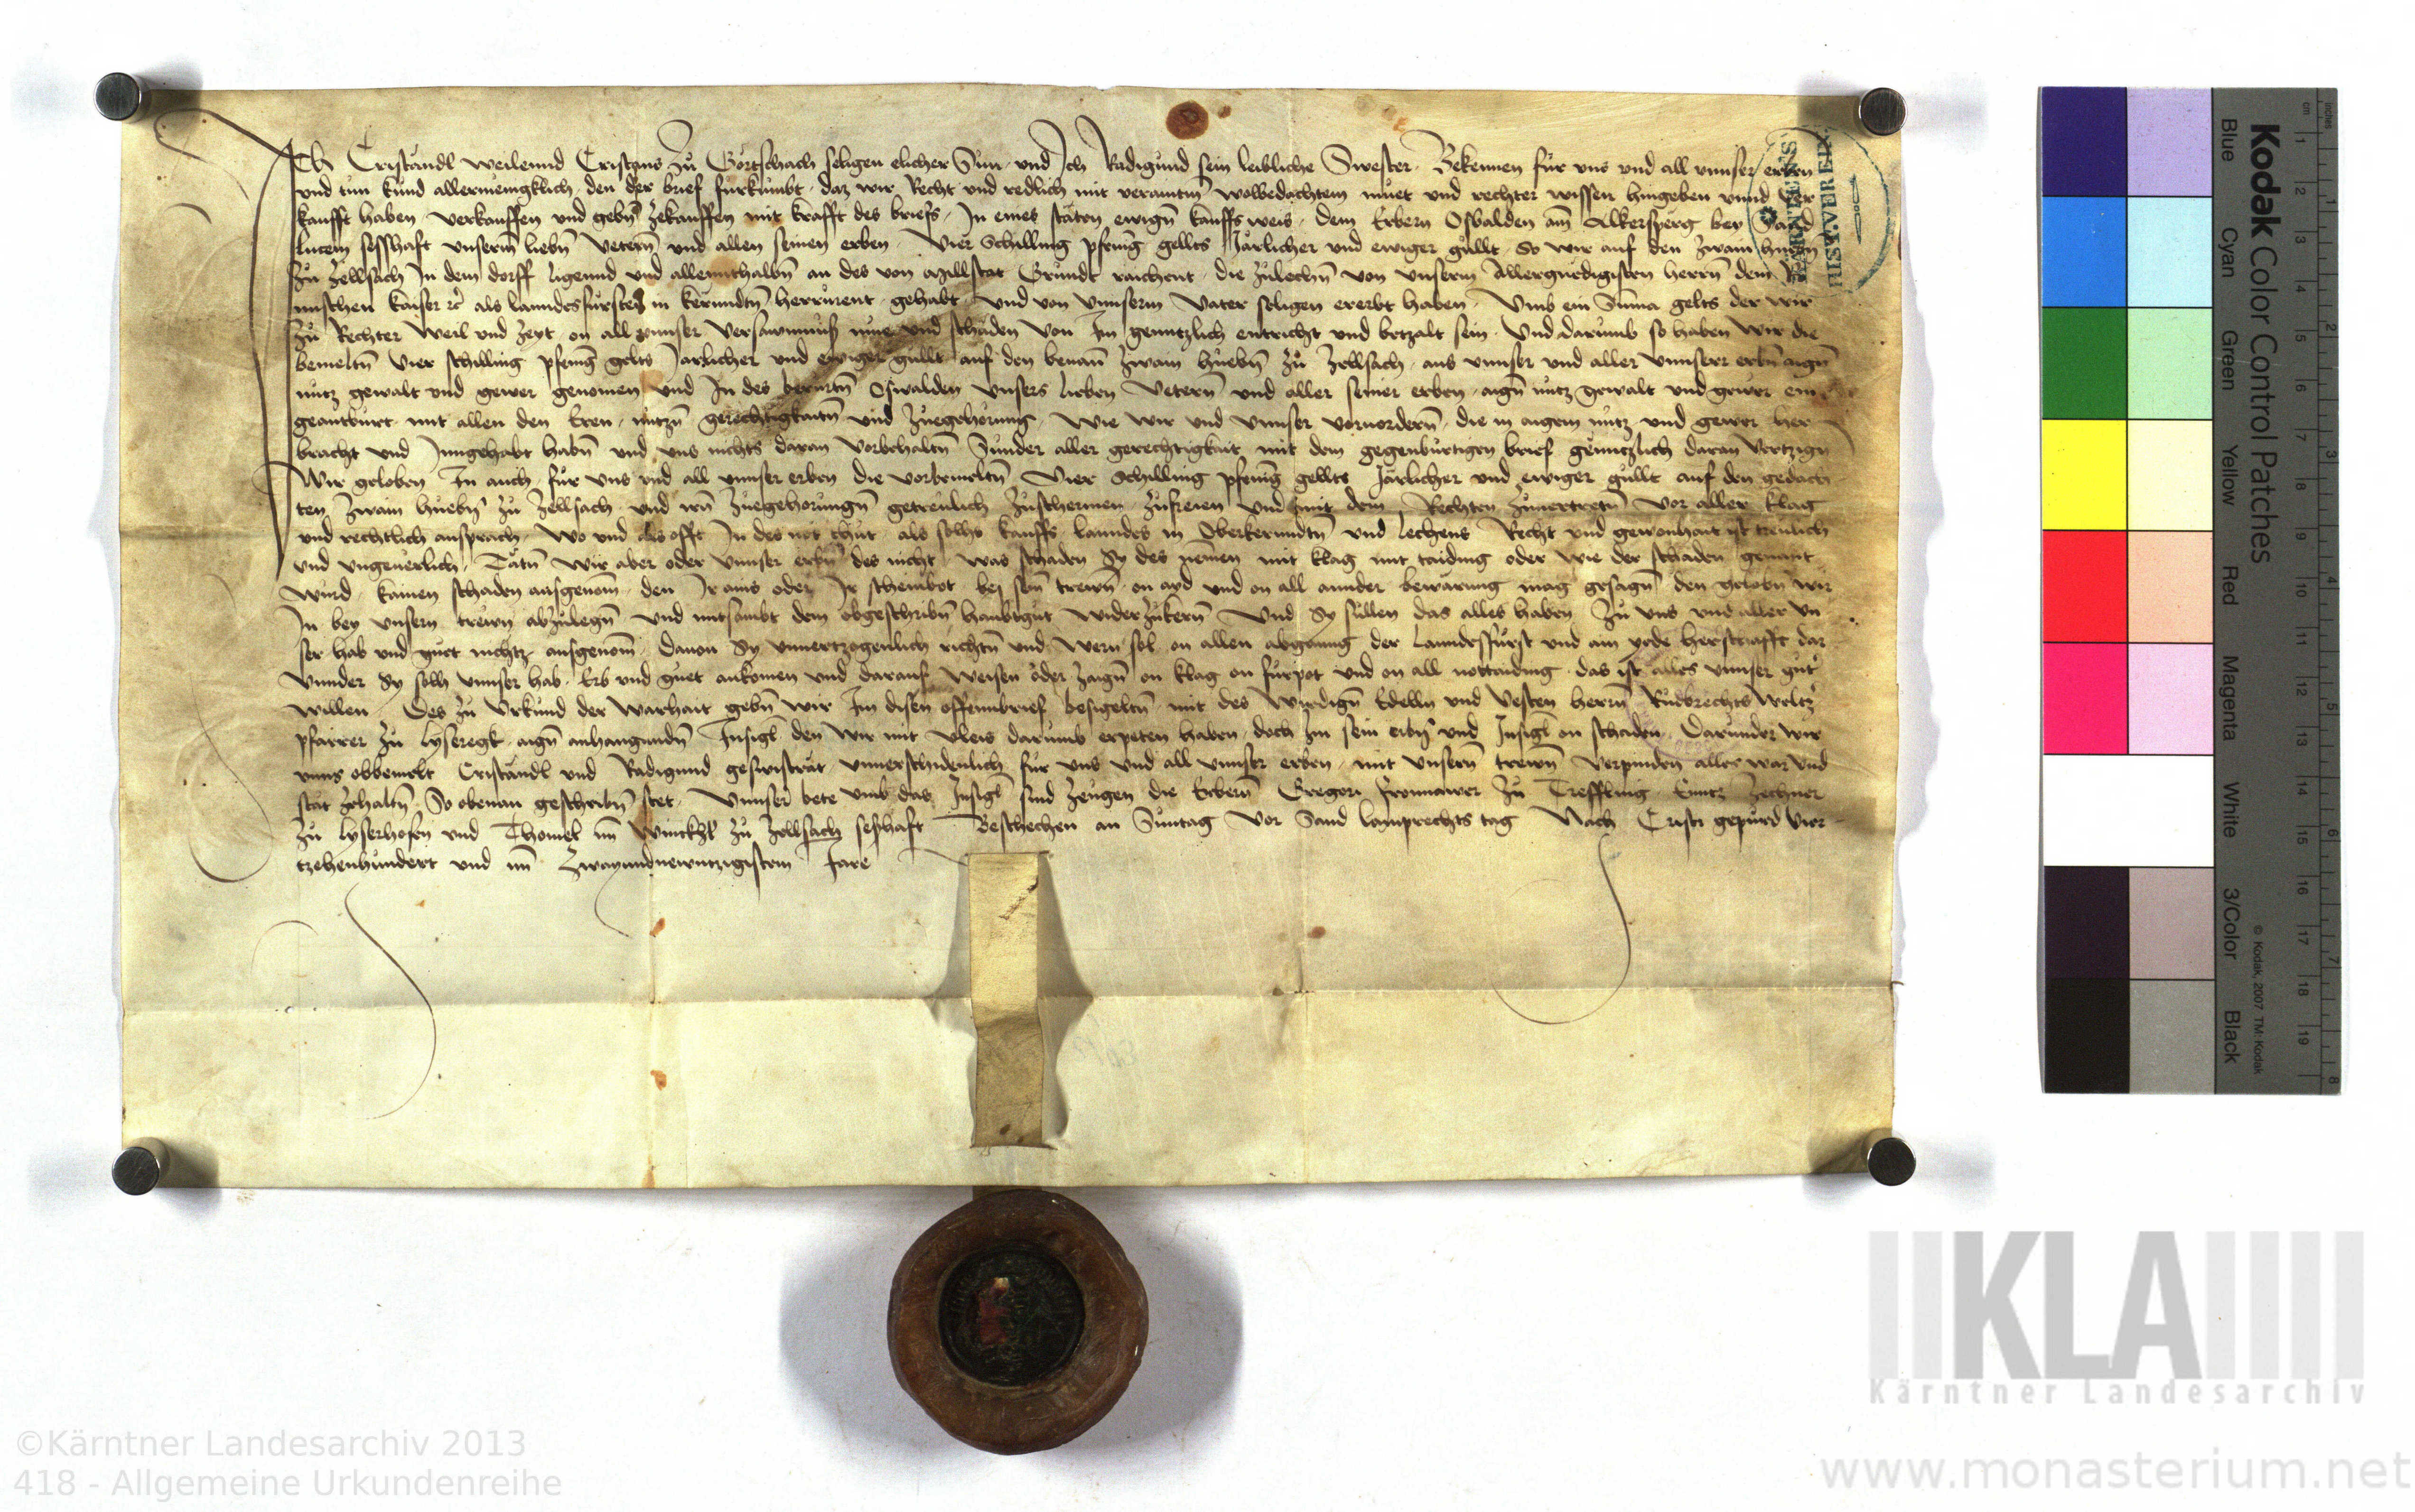 Ich Cristandl weilennd Cristans zu Gortschach seligen elicher Sun und Ich Radigund sein leibliche Swester Bekennen für uns und all unnser erben
und tun kund allermenigklich den der brief furkumbt daz wir Recht und redlich mit veraintm wolbedachtem muet und rechter wissen hingeben unnd ver
kaufft haben verkauffen und gebn zekauffen mit krafft des briefs In eines stäten ewign kauffs weis dem Erbern Oswalden am Alkersperg bey Sand
lucein sesshaft unserm liebn vetern und allen seinen erben vier Schilling pfenig gellts Järlicher und ewiger gullt So wir auf den zwain huebn
zu Zellsach In dem dorff ligennd und allennthalbn an des von Millstat Grundt raichent die zulechn von unserm Allergnedigisten herrn dem Ro
mischen kaiser etc als lanndsfursten in kerundtn herrurent gehabt und von unnserm vater seligen ererbt haben Umb ein Suma gelts der wir
zu Rechter weil und zeyt on all unnser versawmnuß mue und schaden von Im genntzlich entricht und betzalt sein Und darumb so haben wir die
bemeltn vier schilling pfenig gelts Jarlicher und ewiger gullt auf den benan zwain huebn zu Zellsach aus unnser und aller unnserr erbn aign
nutz gewalt und gewer genomen und In des berurtn Oswalden unsers lieben vetern und aller seiner erben aign nutz gewalt und gewer ein
geantwurt mit allen den Eren nutzn gerechtigkaitn und zuegehorung wie wir und unnser vorvordern die in aigem nutz und gewer her
bracht und Inngehabt habn und uns nichts daran vorbehaltn Sunder aller gerechtigkait mit dem gegenburtigen brief genntzlich daran vertzign
Wir geloben In auch für uns und all unnser erben die vorbemeltn vier Schilling pfenig gellts Järlicher und ewiger gullt auf den gedach
ten zwain huebn zu Zellsach und irn zuegehorungn getreulich zuschermen zufreien und mit dem Rechten zuvertretn vor aller klag
und rechtlich ansprach wo und als offt In des not thut als solhs kauffs lanndes in Oberkerundtn und lechens Recht und gewonhait ist treulich
und ungeuerlich Tätn wir aber oder unnser erbn des nicht was schaden Sy des nemen mit klag mit taiding oder wie der schaden genant
wurd kainen schaden ausgenom den Ir ains oder Ir scheinbot bey sein trewn on ayd und on all annder bewärung mag gesagn den gelobn wir
In bey unsern trewn abzulegn und mitsambt dem obgeschribn haubtgut widerzukern Und Sy sullen das alles haben zu uns und aller un
ser hab und guet nichtz ausgenom dauon Sy unnertzogenlich richtn und wern sol on allen abganng der lanndesfurst und ain yede herschafft dar
vunder Sy solh unnser hab Erb und guet ankomen und darauf weisen oder zaign on klag on furpot und on all nottaiding das ist alles unnser gut
willen Des zu Urkund der warhait gebn wir Im disen offennbrief besigeltn mit des wirdign Edelln und Vesten herrn Rudbrechts weltz
pfarrer zu lyseregk aign anhangundn Insigl den wir mit vleis darumb erpeten haben doch Im sein erbn und Insigl on schaden Darunder wir
unns obbemelt Cristandl und Radigund geswistrat unnerschidenlich für uns und all unnser erben mit unsern trewn verpinden alles war und
stät zehaltn So obenan geschribn stet Unnser bete umb das Insigl sind zeugen die Erbern Gregori Fronnawer zu Treffling Cuntz Zechner
zu lyserhofen und Thomel im Winckhl zu Zellsach seßhaft Beschechen an Suntag vor Sand lamprechts tag Nach Cristi gepurd vier
tzehenhundert und im zwayundnewntzigistem Jare
Kodak Color Control Patches
Blue Cyan Green Yellow Red Magenta White 3/Color Black
© Kodak, 2007 TM: Kodak
KLA
Kärntner Landesarchiv
©Kärntner Landesarchiv 2013
418 - Allgemeine Urkundenreihe
www.monasterium.net